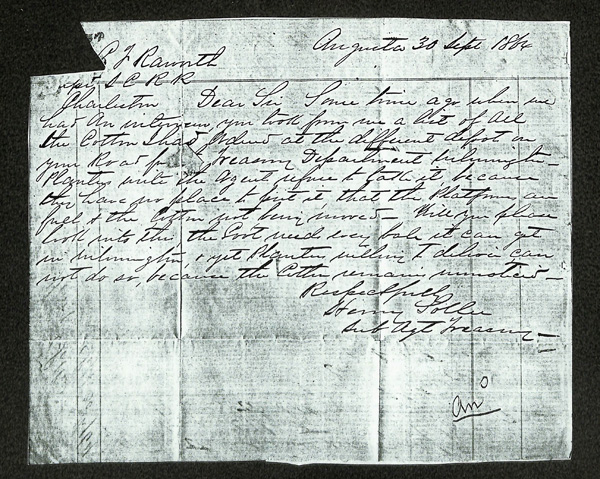 Augusta 30 Sept 1864
R J Raworth
S C R R
Charleston Dear Sir Some time ago when we
had an interview you took from me a list of all
the Cotton I had at the different depot on
your Road for Treasury Department Wilmington
Planters write the agent refuse to take it because
they have no place to put it that the Platforms are
full & the Cotton not being moved Will you please
look into this, the Govt need every bale it can get
in Wilmington & yet Planters willing to deliver can
not do so, because the Cotton remains unmoved
Respectfully
Henry
Sub Agt Treasury